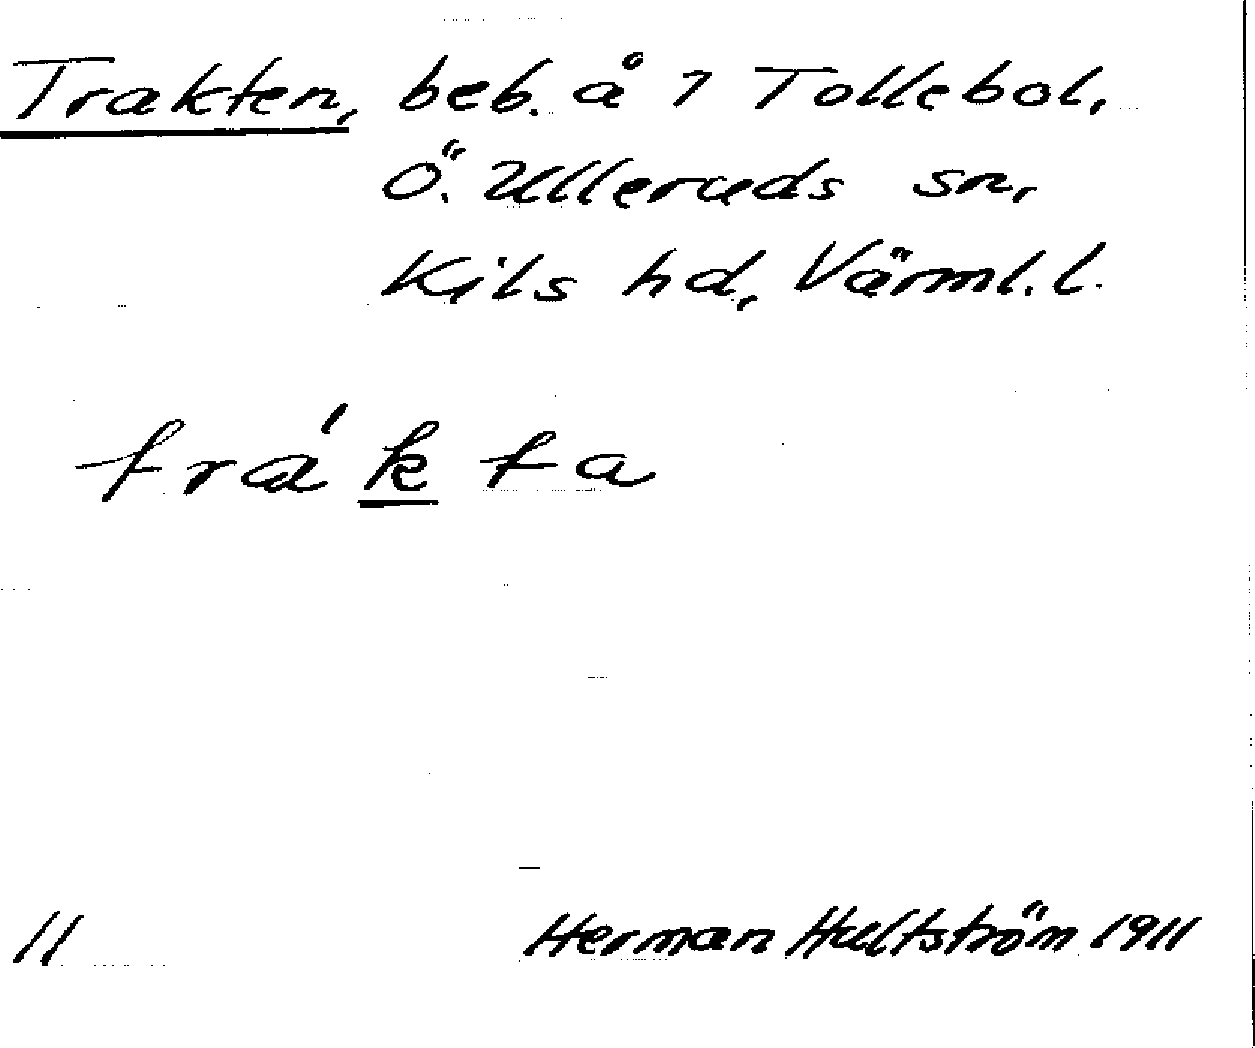 Trakten, beb. å 1 Tollebol,
Ö. Ulleruds sn,
Kils hd, Värml. l.
trákta
11
Herman Hultström 1911